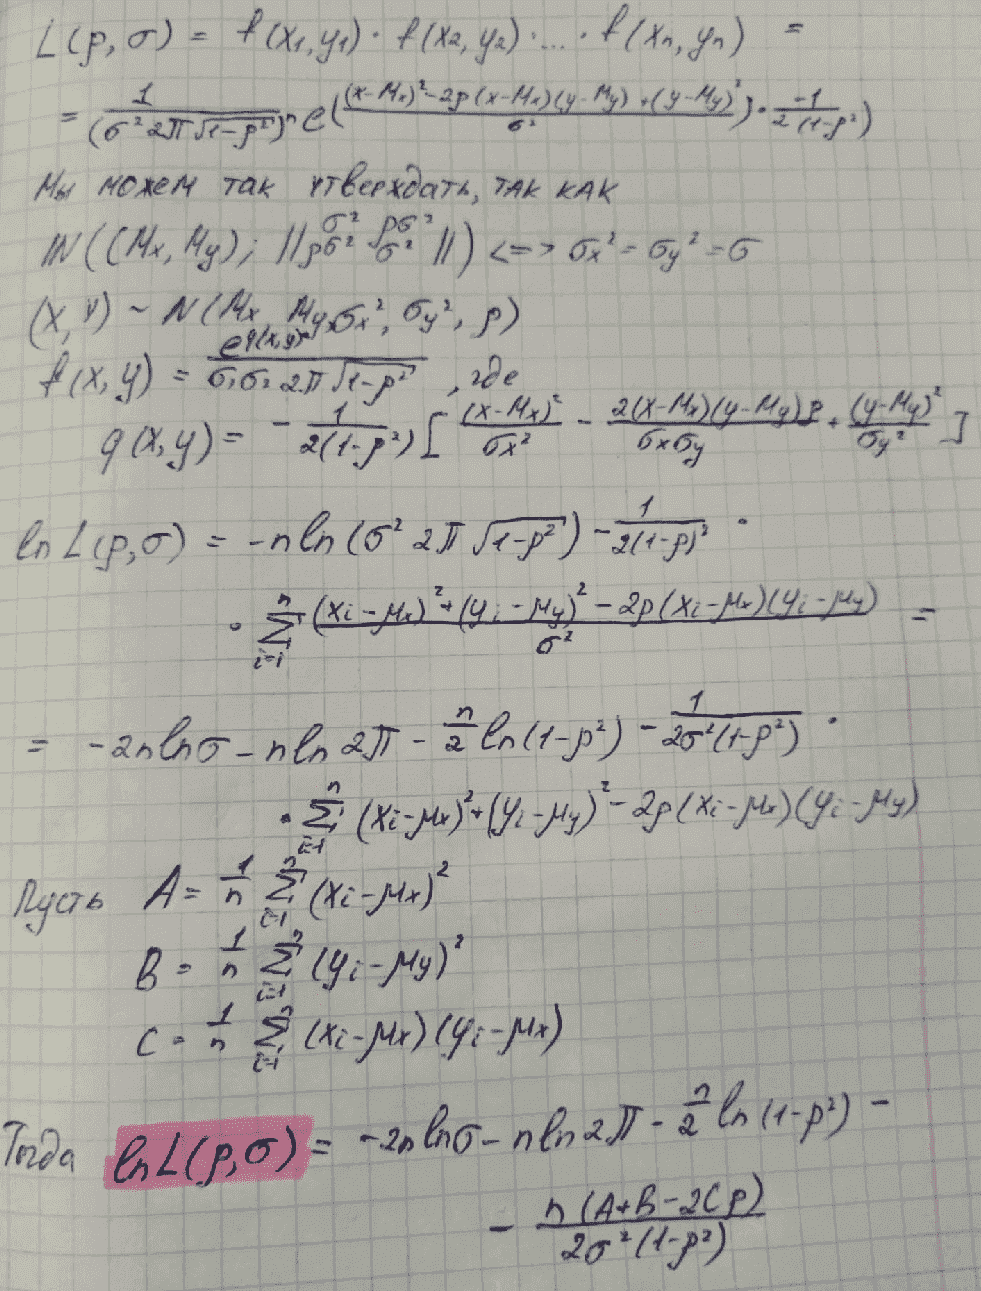 L(ρ, σ) = f(x₁, y₁) · f(x₂, y₂) · ... · f(xₙ, yₙ) =
= 1/(σ² 2π √(1-ρ²))ⁿ e^([((x-Mx)² - 2ρ(x-Mx)(y-My) + (y-My)²)/σ²] · -1/(2(1-ρ²)))
Мы можем так утверждать, так как
N((Mx, My); ||σ² ρσ² ρσ² σ²||) <=> σx² = σy² = σ
(x, y) ~ N(Mx, My, σx², σy², ρ)
f(x, y) = e^(q(x,y))/(σ₁σ₂ 2π √(1-ρ²)), где
q(x, y) = - 1/(2(1-ρ²)) [(x-Mx)²/σx² - 2(x-Mx)(y-My)ρ/(σxσy) + (y-My)²/σy²]
ln L(ρ, σ) = -n ln(σ² 2π √(1-ρ²)) - 1/(2(1-ρ)²) ·
· Σᵢ₌₁ⁿ ((xᵢ-μx)² + (yᵢ-μy)² - 2ρ(xᵢ-μx)(yᵢ-μy))/σ² =
= -2n ln σ - n ln 2π - n/2 ln(1-ρ²) - 1/(2σ²(1-ρ²)) ·
· Σᵢ₌₁ⁿ (xᵢ-μx)² + (yᵢ-μy)² - 2ρ(xᵢ-μx)(yᵢ-μy)
Пусть A = 1/n Σᵢ₌₁ⁿ (xᵢ-μx)²
B = 1/n Σᵢ₌₁ⁿ (yᵢ-μy)²
C = 1/n Σᵢ₌₁ⁿ (xᵢ-μx)(yᵢ-μx)
Тогда ln L(ρ, σ) = -2n ln σ - n ln 2π - n/2 ln(1-ρ²) -
- n(A+B-2Cρ)/(2σ²(1-ρ²))